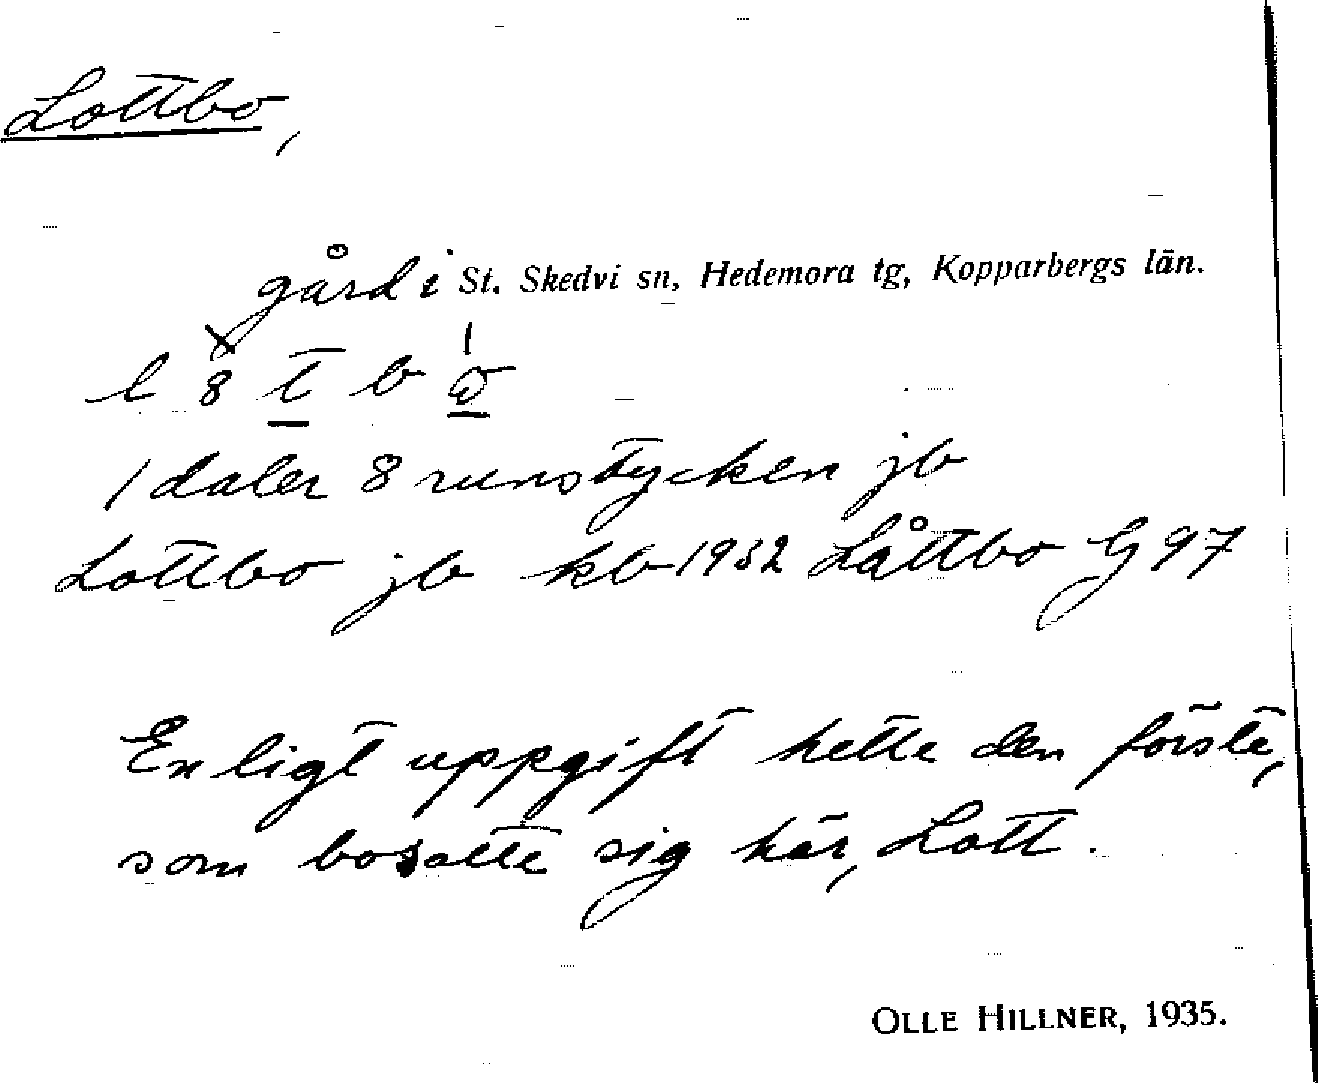 Lottbo,
gård i St. Skedvi sn, Hedemora tg, Kopparbergs län.
l 8 t b ω
1 daler 8 runstycken jb
Lottbo jb kb 1932 Låttbo G 97
Enligt uppgift hette den förste,
som bosatte sig här, Lott.
OLLE HILLNER, 1935.